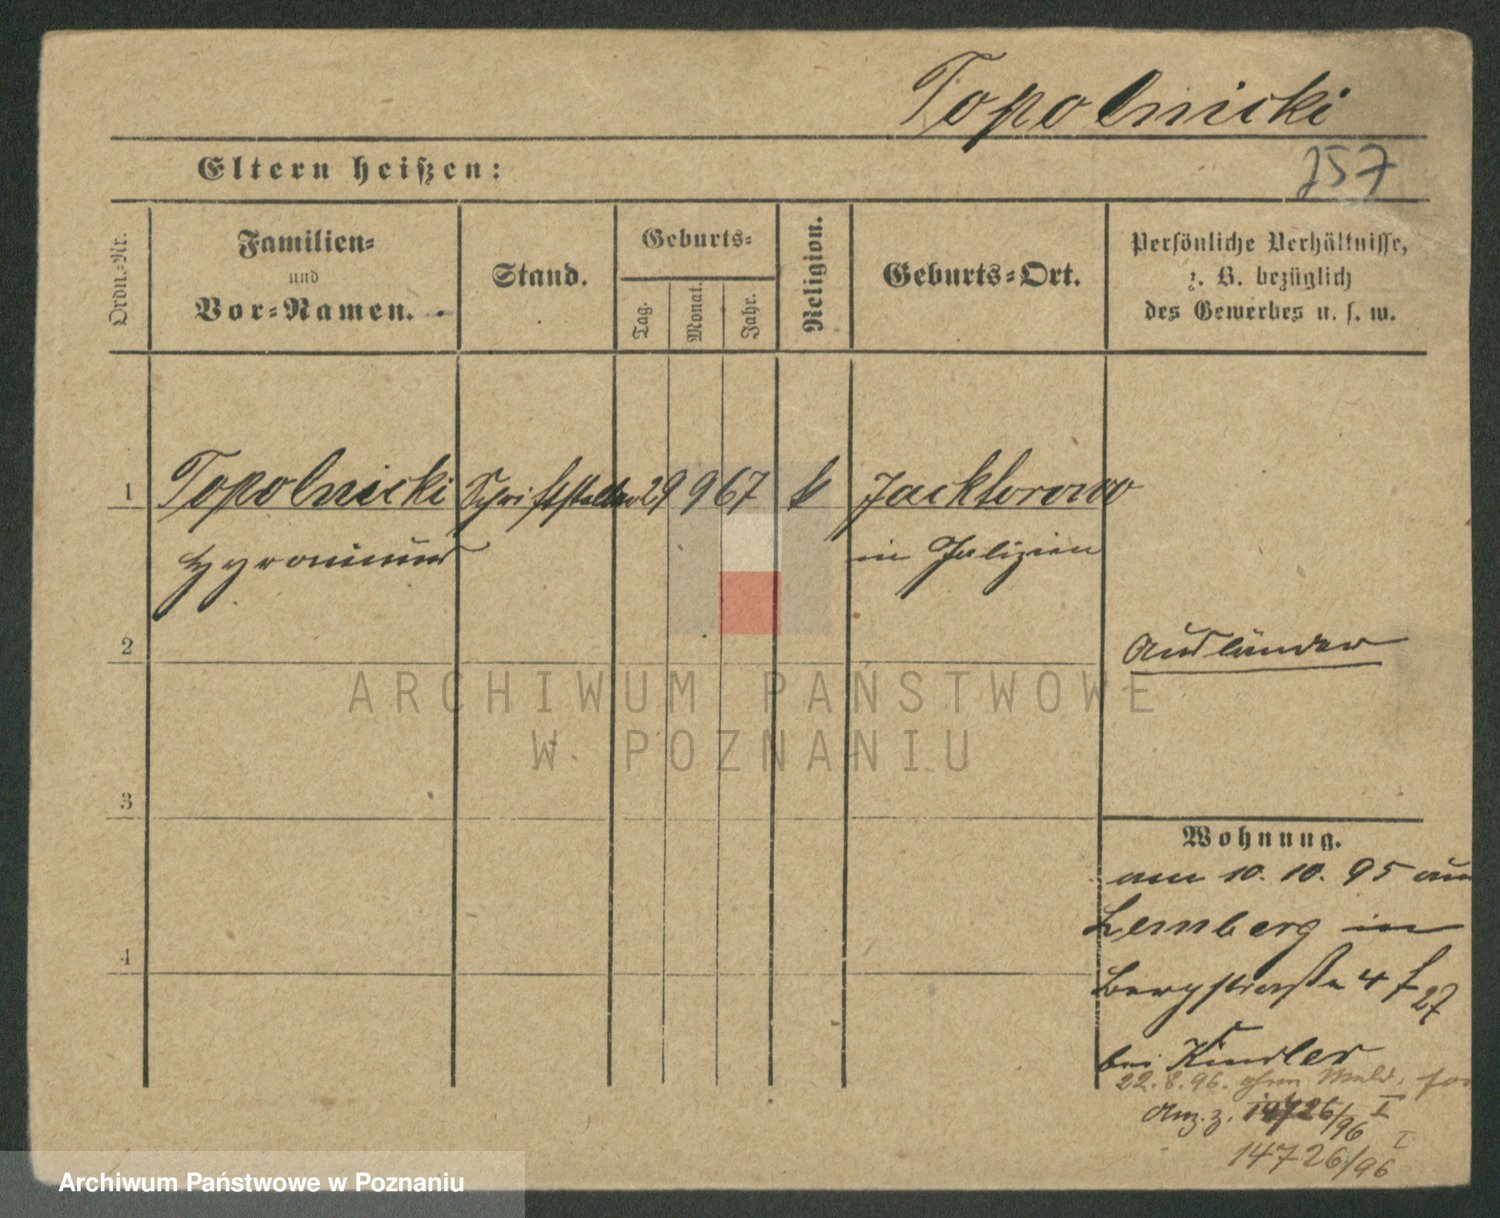 Topolnicki
757
Eltern heißen:
Ordn.-Nr.
Familien-
und
Vor-Namen.
Stand.
Geburts-
Tag.
Monat.
Jahr.
Religion.
Geburts-Ort.
Persönliche Verhältnisse,
z. B. bezüglich
des Gewerbes u. s. w.
1 Topolnicki Schriftsteller 29 9 67 k Jacktorowo
Hyronimus in Galizien
2
Ausländer
ARCHIWUM PAŃSTWOWE
W POZNANIU
3
Wohnung.
am 10. 10. 95 aus
Lemberg in
4
Bergstraße 4 f 27
bei Kindler
22. 8. 96. ohne Meld. for
Anz. z. 14726/96 I
14726/96 I
Archiwum Państwowe w Poznaniu